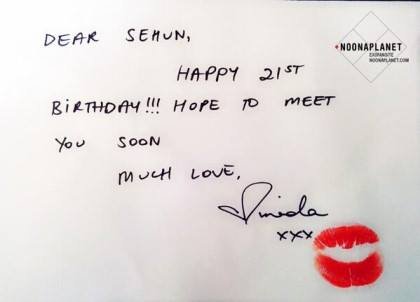 DEAR SEHUN,
HAPPY 21ST
BIRTHDAY!!! HOPE TO MEET
YOU SOON
MUCH LOVE,
Miranda
xxx
NOONAPLANET
EXOFANSITE
NOONAPLANET.COM